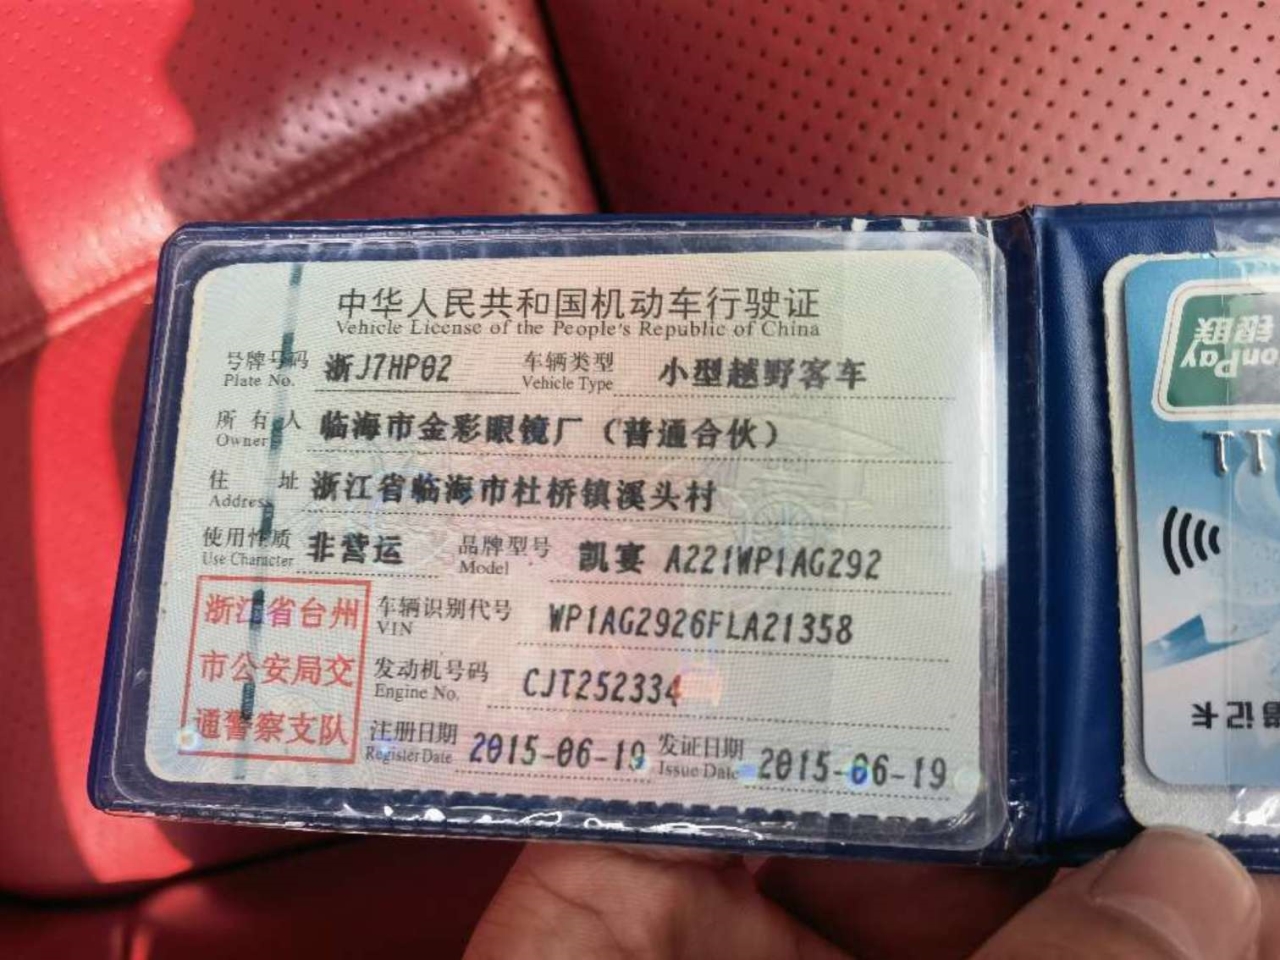 中华人民共和国机动车行驶证
Vehicle License of the People's Republic of China
号牌号码 浙J7HP02 车辆类型 小型越野客车
Plate No. Vehicle Type
所有人 临海市金彩眼镜厂（普通合伙）
Owner
住址 浙江省临海市杜桥镇溪头村
Address
使用性质 非营运 品牌型号 凯宴 A221WP1AG292
Use Character Model
浙江省台州
市公安局交
通警察支队
车辆识别代号 WP1AG2926FLA21358
VIN
发动机号码 CJT252334
Engine No.
注册日期 2015-06-19 发证日期 2015-06-19
Register Date Issue Date
银联
onPay
记卡